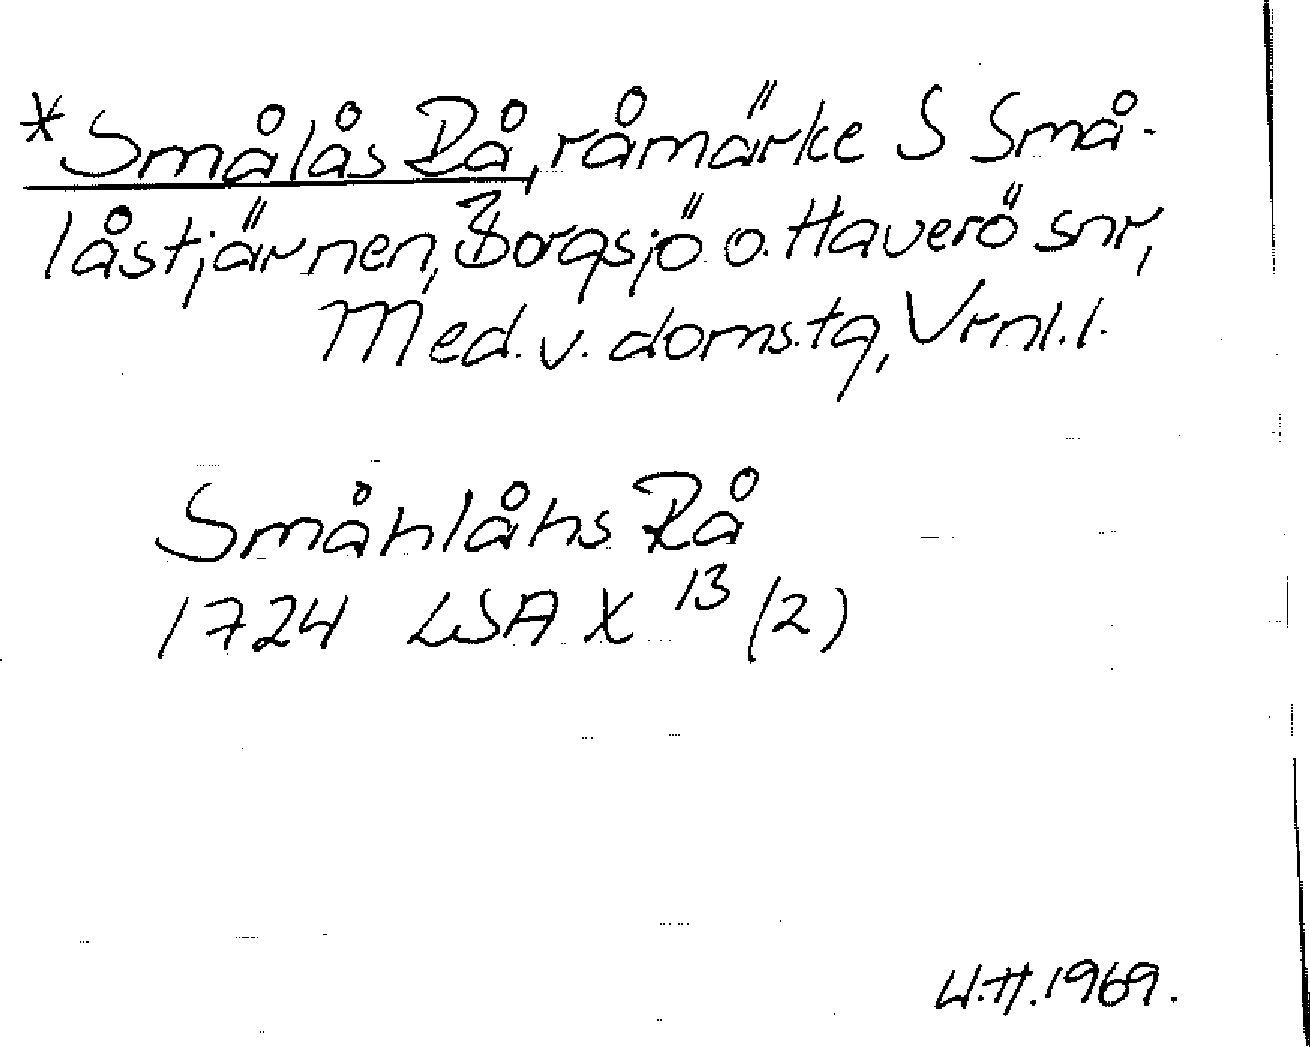 *Smålås Rå, råmärke S Små-
låstjärnen, Borgsjö o. Haverö snr,
Med. v. doms.tg, Vrnl.l.
Småhlåhs Rå
1724 LSA X 13 (2)
U.H. 1969.